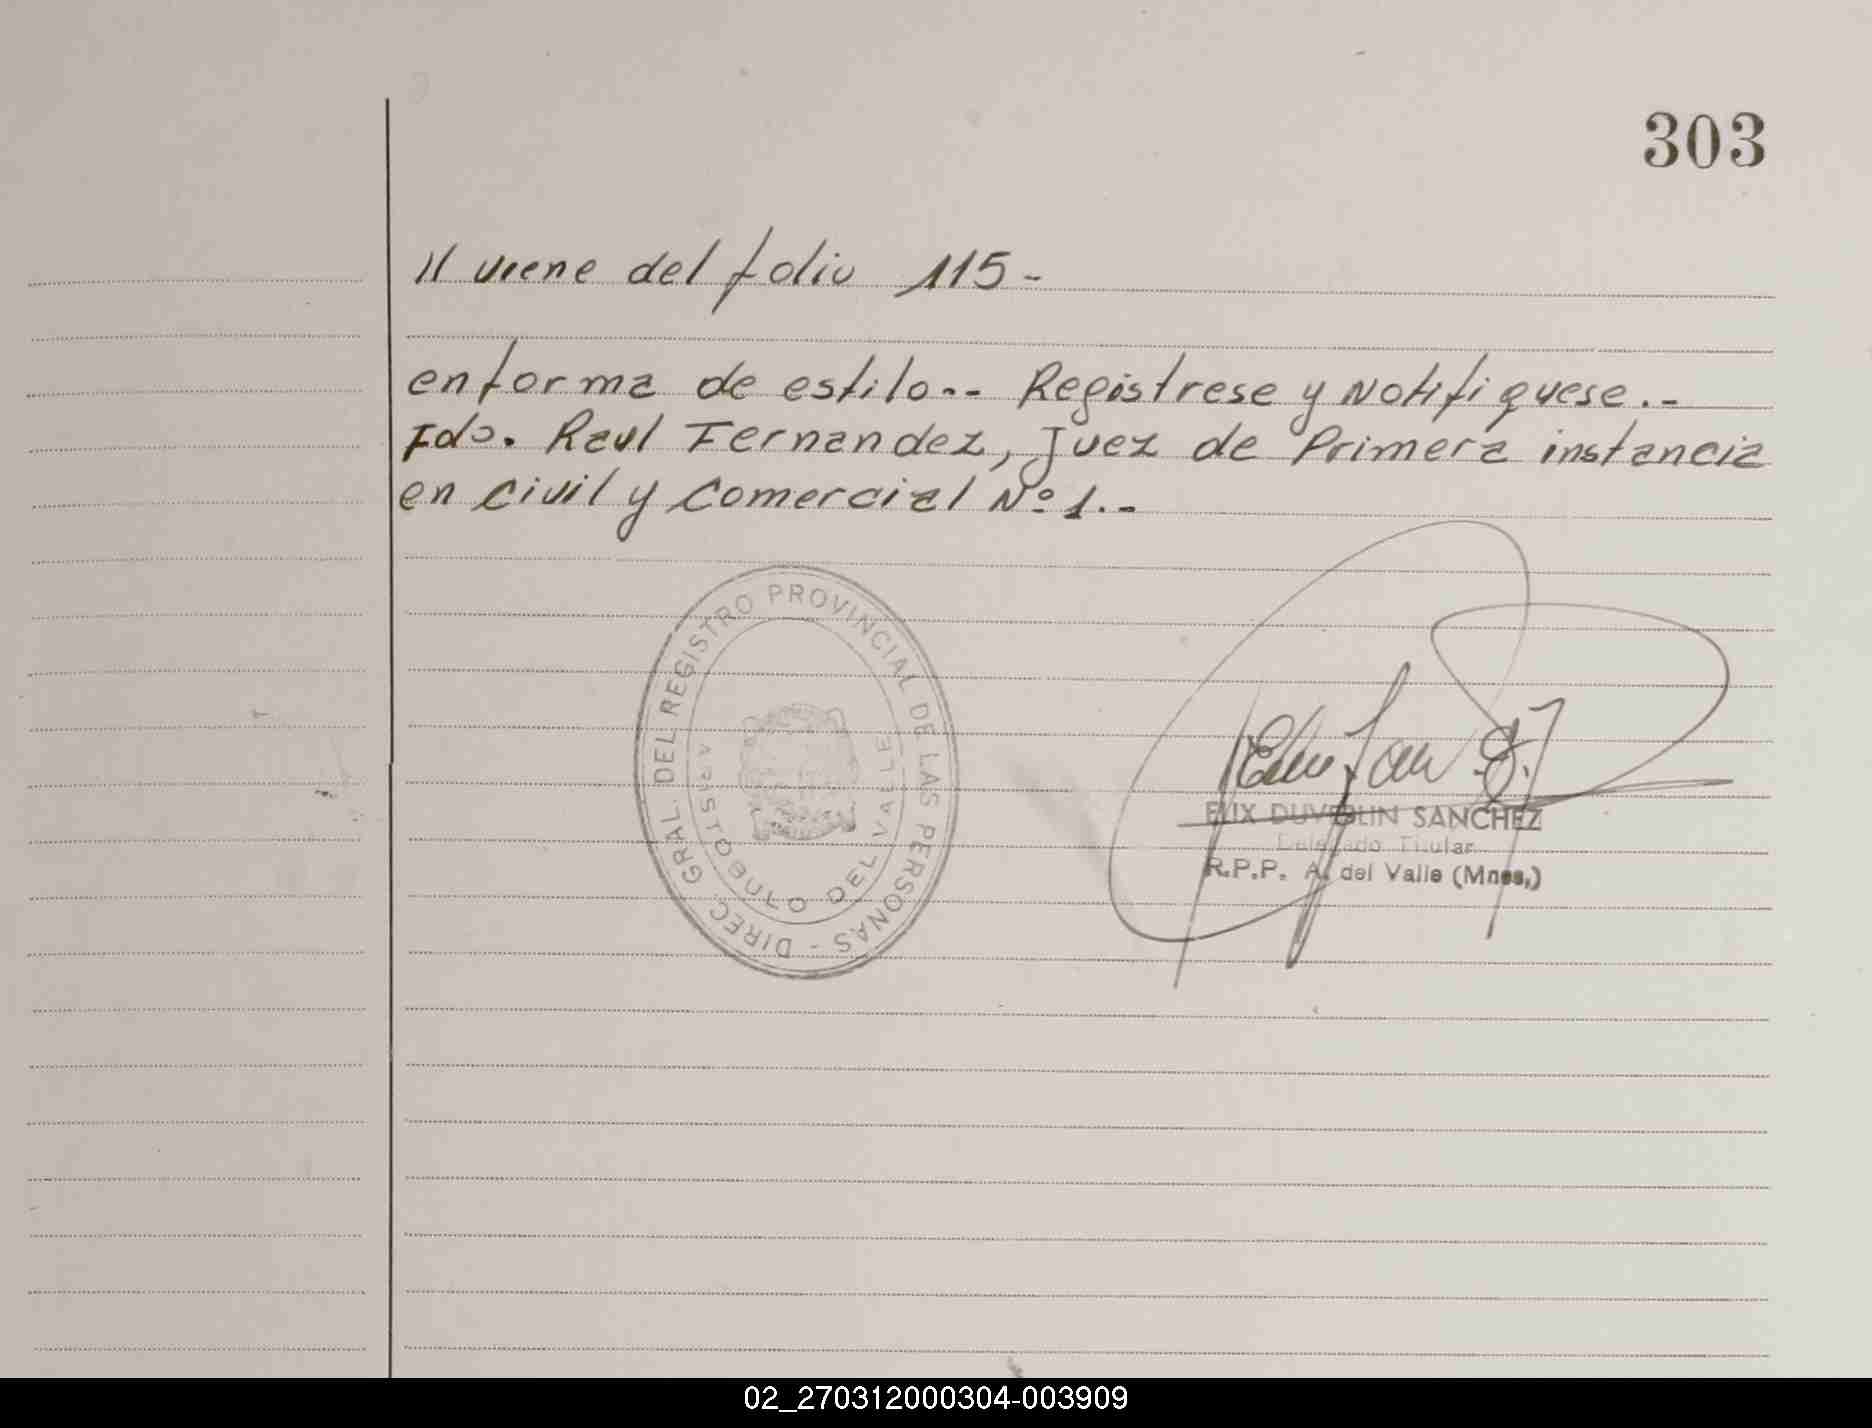 303
// viene del folio 115-
en forma de estilo.-- Registrese y Notifiquese.--
Fdo. Raul Fernandez, Juez de Primera instancia
en Civil y Comercial Nº 1.--
DIREC. GRAL. DEL REGISTRO PROVINCIAL DE LAS PERSONAS -
ARISTOBULO DEL VALLE
ELIX DUVERLIN SANCHEZ
Delegado Titular
R.P.P. A. del Valle (Mnes,)
02_270312000304-003909